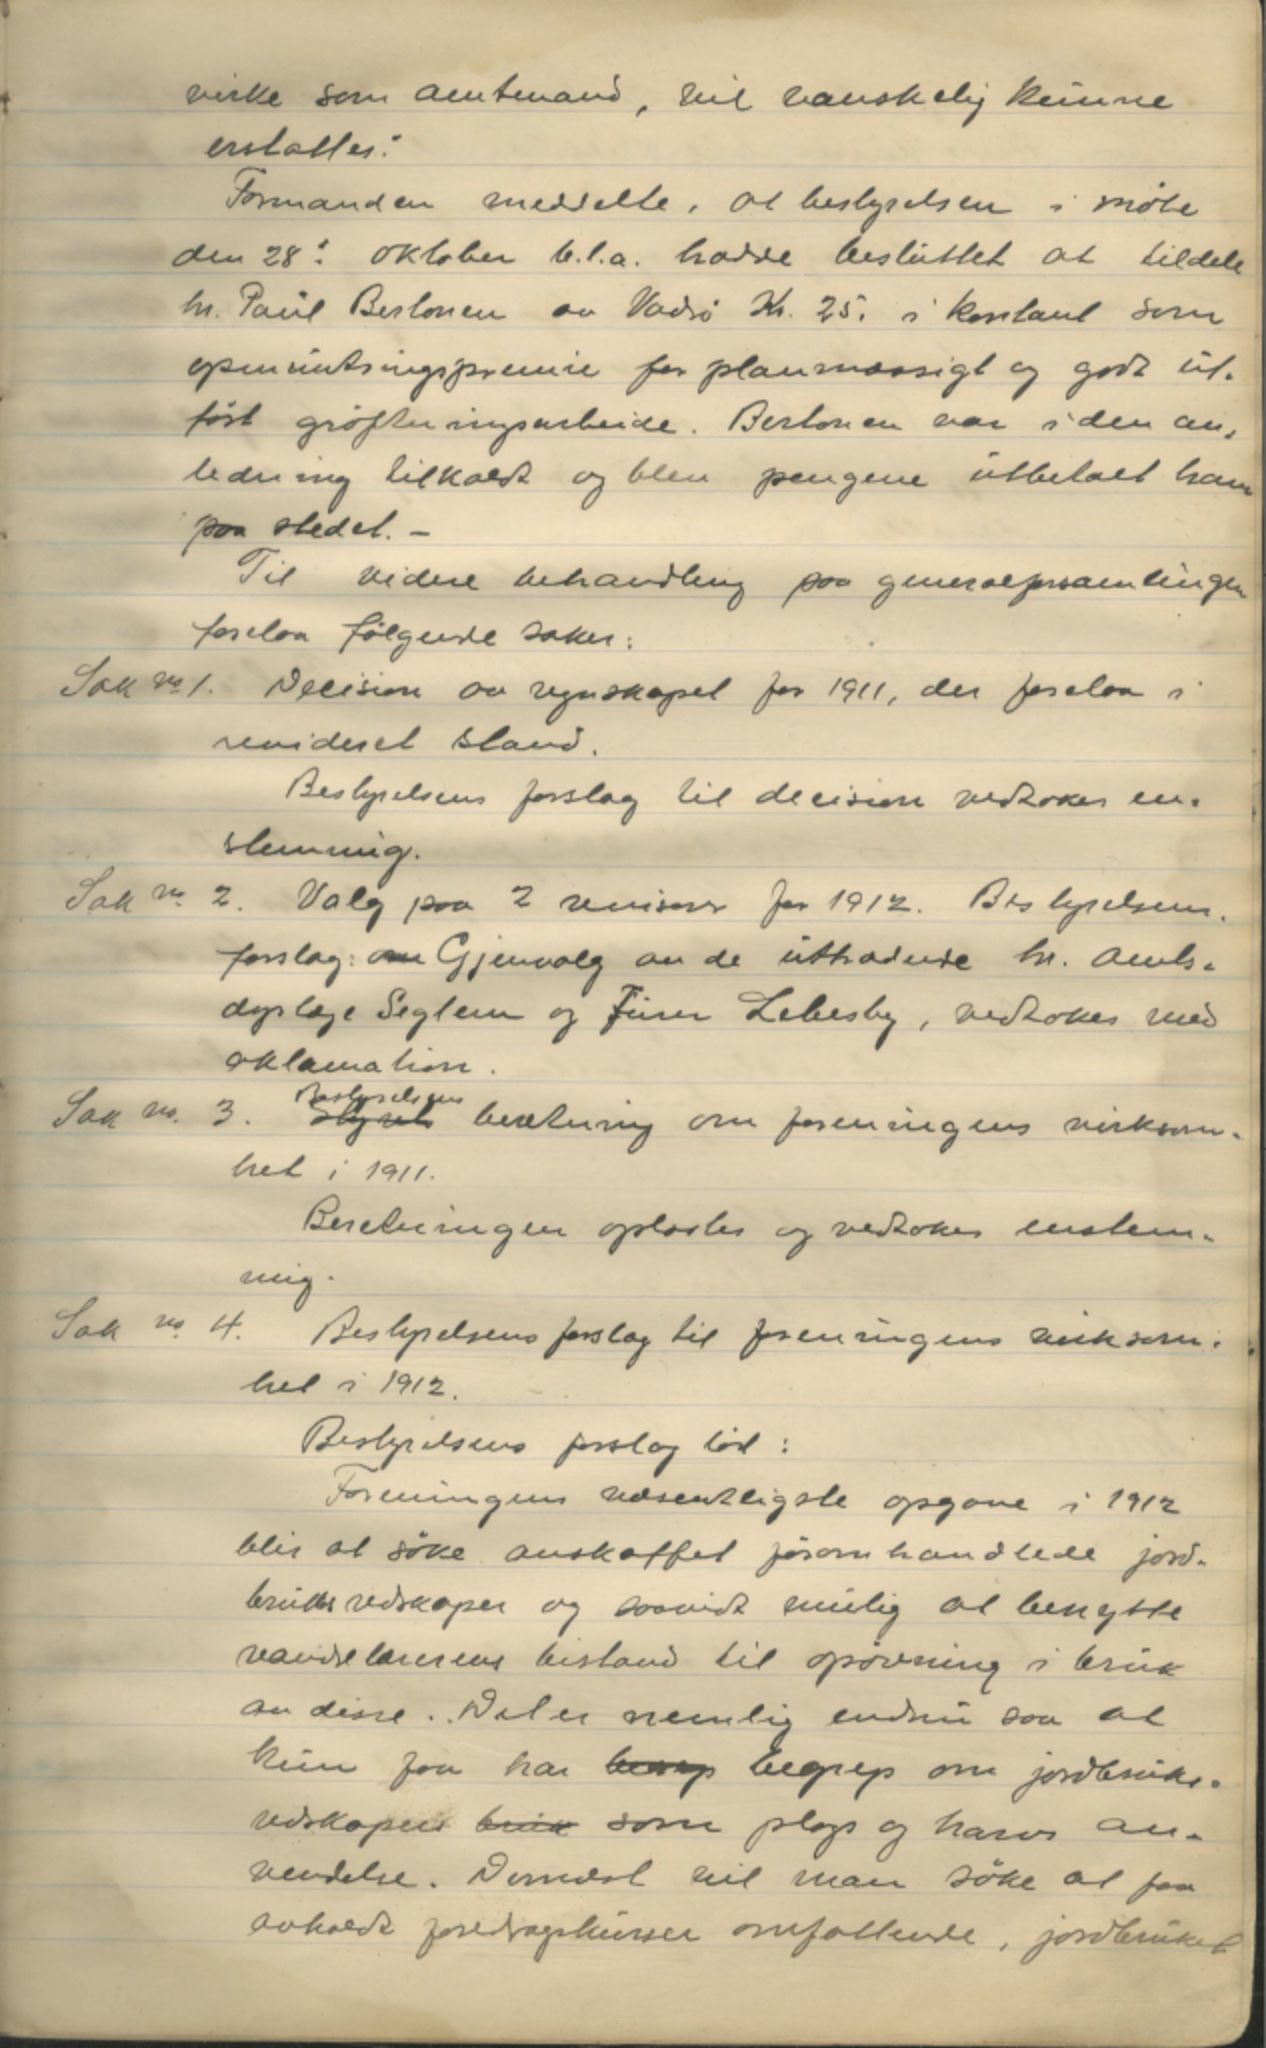 virke som amtmand, vil vanskelig kunne
erstattes."
Formanden meddelte, at bestyrelsen i møte
den 28: oktober b.l.a. hadde besluttet at tildele
hr. Paul Bertonen av Vadsö Kr. 25. i kontant som
opmuntringspremie for planmæssigt og godt ut-
ført grøftningsarbeide. Bertonen var i den an-
ledning tilkaldt og blev pengene utbetalt ham
paa stedet. -
Til videre behandling paa generalforsamlingen
forelaa følgende saker:
Sak no. 1. Decision av regnskapet for 1911, der forelaa i
revideret stand.
Bestyrelsens forslag til decision vedtokes en-
stemmig.
Sak no. 2. Valg paa 2 revisorer for 1912. Bestyrelsens
forslag: om Gjenvalg av de uttrædende hr. amts-
dyrlæge Seglem og Furer Lebesby, vedtokes med
aklamation.
Sak no. 3. Styrets Bestyrelsens beretning om foreningens virksom-
het i 1911.
Beretningen oplæstes og vedtokes enstem-
mig.
Sak no. 4. Bestyrelsens forslag til foreningens virksom-
het i 1912.
Bestyrelsens forslag löd:
Foreningens væsentligste opgave i 1912
blir at söke anskaffet förömhandlede jord-
bruksredskaper og saavidt mulig at benytte
vandrelærerens bistand til opövning i bruk
av disse. Det er nemlig endnu saa at
kun faa har begrep om jordbruks-
redskapers bruk som plogs og harvs an-
vendelse. Dernæst vil man söke at faa
avholdt foredragskurser omfattende, jordbruket